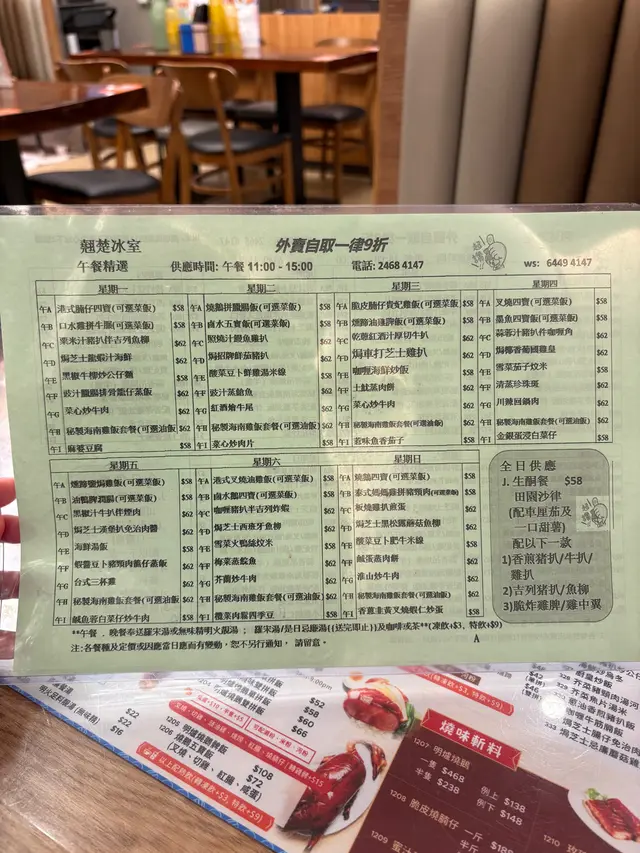 翹楚冰室
外賣自取一律9折
午餐精選 供應時間: 午餐 11:00 - 15:00 電話: 2468 4147 ws: 6449 4147
星期一
午A 港式腩仔四寶(可選菜飯) $58
午B 口水雞拼牛𦟌(可選菜飯) $58
午C 粟米汁豬扒伴吉魚柳 $62
午D 焗芝士龍蝦汁海鮮 $62
午E 黑椒牛柳炒公仔麵 $58
午F 豉汁臘腸排骨籠仔蒸飯 $62
午G 菜心炒牛肉 $62
午H 秘製海南雞飯套餐(可選油飯) $62
午I 麻婆豆腐 $58
星期二
午A 燒鵝拼臘腸飯(可選菜飯) $58
午B 鹵水五寶飯(可選菜飯) $58
午C 照燒汁鰻魚雞扒 $62
午D 焗招牌鮮茄豬扒 $62
午E 酸菜豆卜鮮雞湯米線 $58
午F 豉汁蒸鯇魚 $62
午G 紅酒燴牛尾 $62
午H 秘製海南雞飯套餐(可選油飯) $62
午I 菜心炒肉片 $58
星期三
午A 脆皮腩仔貴妃雞飯(可選菜飯) $58
午B 燻蹄油雞髀飯(可選菜飯) $58
午C 乾蔥紅酒汁厚切牛扒 $62
午D 焗車打芝士雞扒 $62
午E 咖喱海鮮炒飯 $58
午F 土魷蒸肉餅 $62
午G 菜心炒牛肉 $62
午H 秘製海南雞飯套餐(可選油飯) $62
午I 惹味魚香茄子 $58
星期四
午A 叉燒四寶(可選菜飯) $58
午B 墨魚四寶飯(可選菜飯) $58
午C 蒜蓉汁豬扒件咖喱角 $62
午D 焗椰香葡國雞皇 $62
午E 雪菜茄子炆米 $58
午F 清蒸珍珠斑 $62
午G 川辣回鍋肉 $62
午H 秘製海南雞飯套餐(可選油飯) $62
午I 金銀蛋浸白菜仔 $58
星期五
午A 燻蹄鹽焗雞飯(可選菜飯) $58
午B 油鴨髀潤腸(可選菜飯) $58
午C 黑椒汁牛扒伴煙肉 $62
午D 焗芝士漢堡扒免治肉醬 $62
午E 海鮮湯飯 $58
午F 蝦醬豆卜豬頸肉籠仔蒸飯 $62
午G 台式三杯雞 $62
午H 秘製海南雞飯套餐(可選油飯) $62
午I 鹹魚蓉白菜仔炒牛肉 $58
星期六
午A 港式叉燒油雞飯(可選菜飯) $58
午B 鹵水鵝四寶(可選菜飯) $58
午C 咖喱豬扒半吉列炸蝦 $62
午D 焗芝士西班牙魚柳 $62
午E 雪菜火鴨絲炆米 $58
午F 梅菜蒸鯇魚 $62
午G 芥蘭炒牛肉 $62
午H 秘製海南雞飯套餐(可選油飯) $62
午I 欖菜肉鬆四季豆 $58
星期日
午A 燒鵝四寶(可選菜飯) $58
午B 泰式媽媽雞拼豬頸肉(可選菜飯) $58
午C 板燒雞扒煎蛋 $62
午D 焗芝士黑松露蘑菇魚柳 $62
午E 酸菜豆卜肥牛米線 $58
午F 鹹蛋蒸肉餅 $62
午G 淮山炒牛肉 $62
午H 秘製海南雞飯套餐(可選油飯) $62
午I 香蔥韭黃叉燒蝦仁炒蛋 $58
全日供應
J. 生酮餐 $58
田園沙律
(配車厘茄及
一口甜薯)
配以下一款
1)香煎豬扒/牛扒/
雞扒
2)吉列豬扒/魚柳
3)脆炸雞髀/雞中翼
**午餐﹐晚餐奉送羅宋湯或無味精明火靚湯; 羅宋湯/是日忌廉湯{{送完即止}}及咖啡或茶**(凍飲+$3, 特飲+$9)
注:各餐種及定價或因應當日應而有變動, 您不另行通知, 請留意。
A
明火足料靚湯
$22
$22
$16
$52
$58
$60
$66
1205 明爐燒鵝髀飯 $108
1206 燒鵝五寶飯 $72
(叉燒、切雞、紅腸、咸蛋)
燒味斬料
1207 明爐燒鵝
一隻 $468 例上 $138
半隻 $238 例下 $148
1208 脆皮燒腩仔 一斤 $188
1209
1210